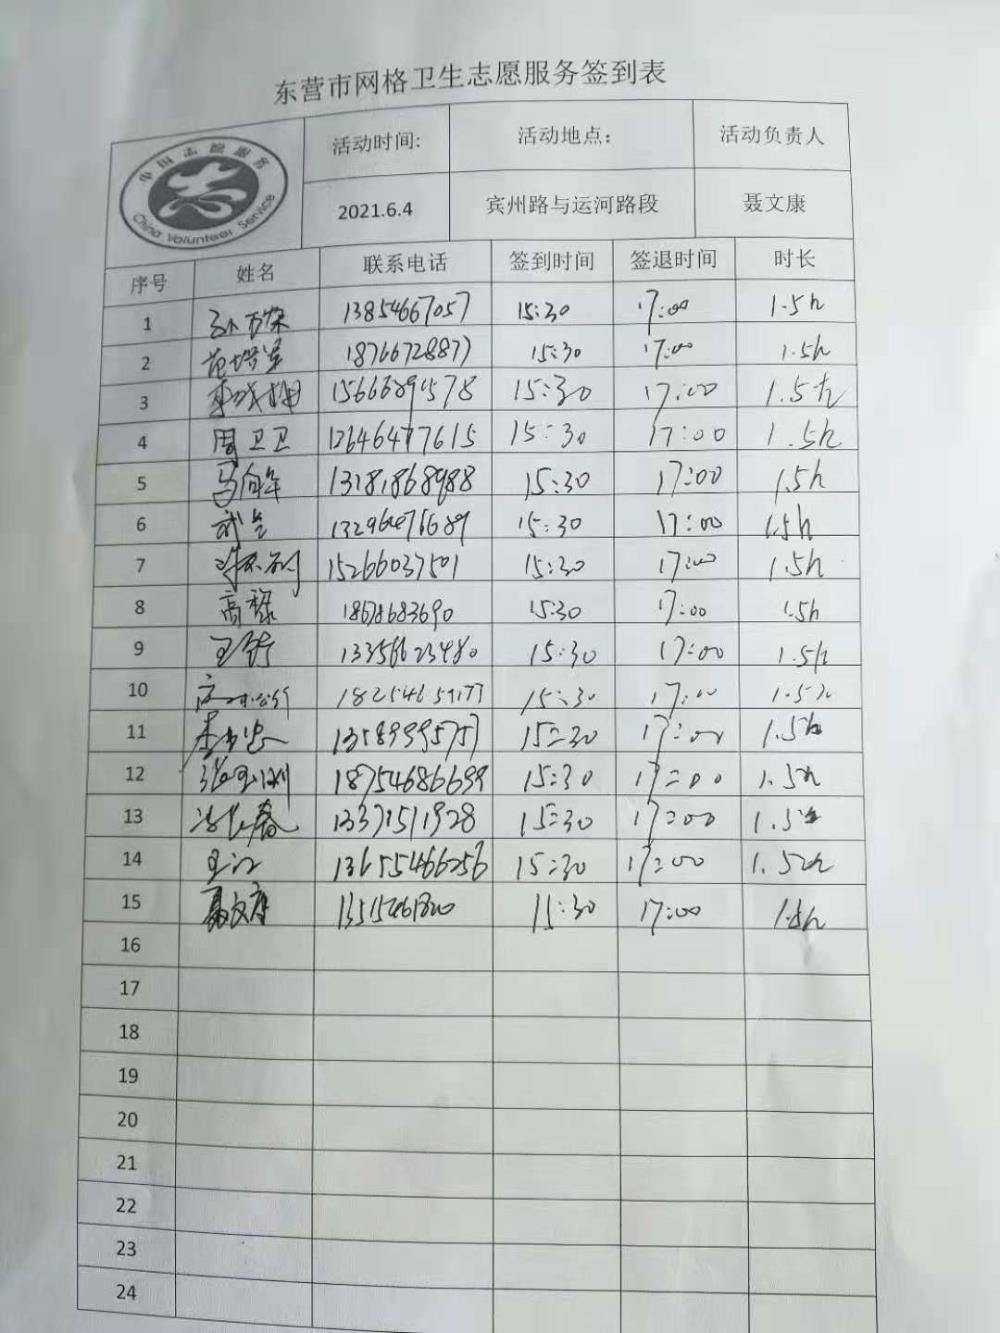 东营市网格卫生志愿服务签到表
中国志愿服务
China Volunteer Service
活动时间: 活动地点： 活动负责人
2021.6.4 宾州路与运河路段 聂文康
序号 姓名 联系电话 签到时间 签退时间 时长
1 13854667057 15:30 17:00 1.5h
2 15:30 17:00 1.5h
3 15:30 17:00 1.5h
4 周卫卫 12646477615 15:30 17:00 1.5h
5 13181868988 15:30 17:00 1.5h
6 15:30 17:00 1.5h
7 15266037501 15:30 17:00 1.5h
8 高禄 18678683690 15:30 17:00 1.5h
9 15:30 17:00 1.5h
10 15:30 17:00 1.5h
11 15:30 17:00 1.5h
12 18754686699 15:30 17:00 1.5h
13 13371511928 15:30 17:00
14 13655466256 15:30 17:00 1.5h
15 聂文康 15:30 17:00 1.5h
16
17
18
19
20
21
22
23
24